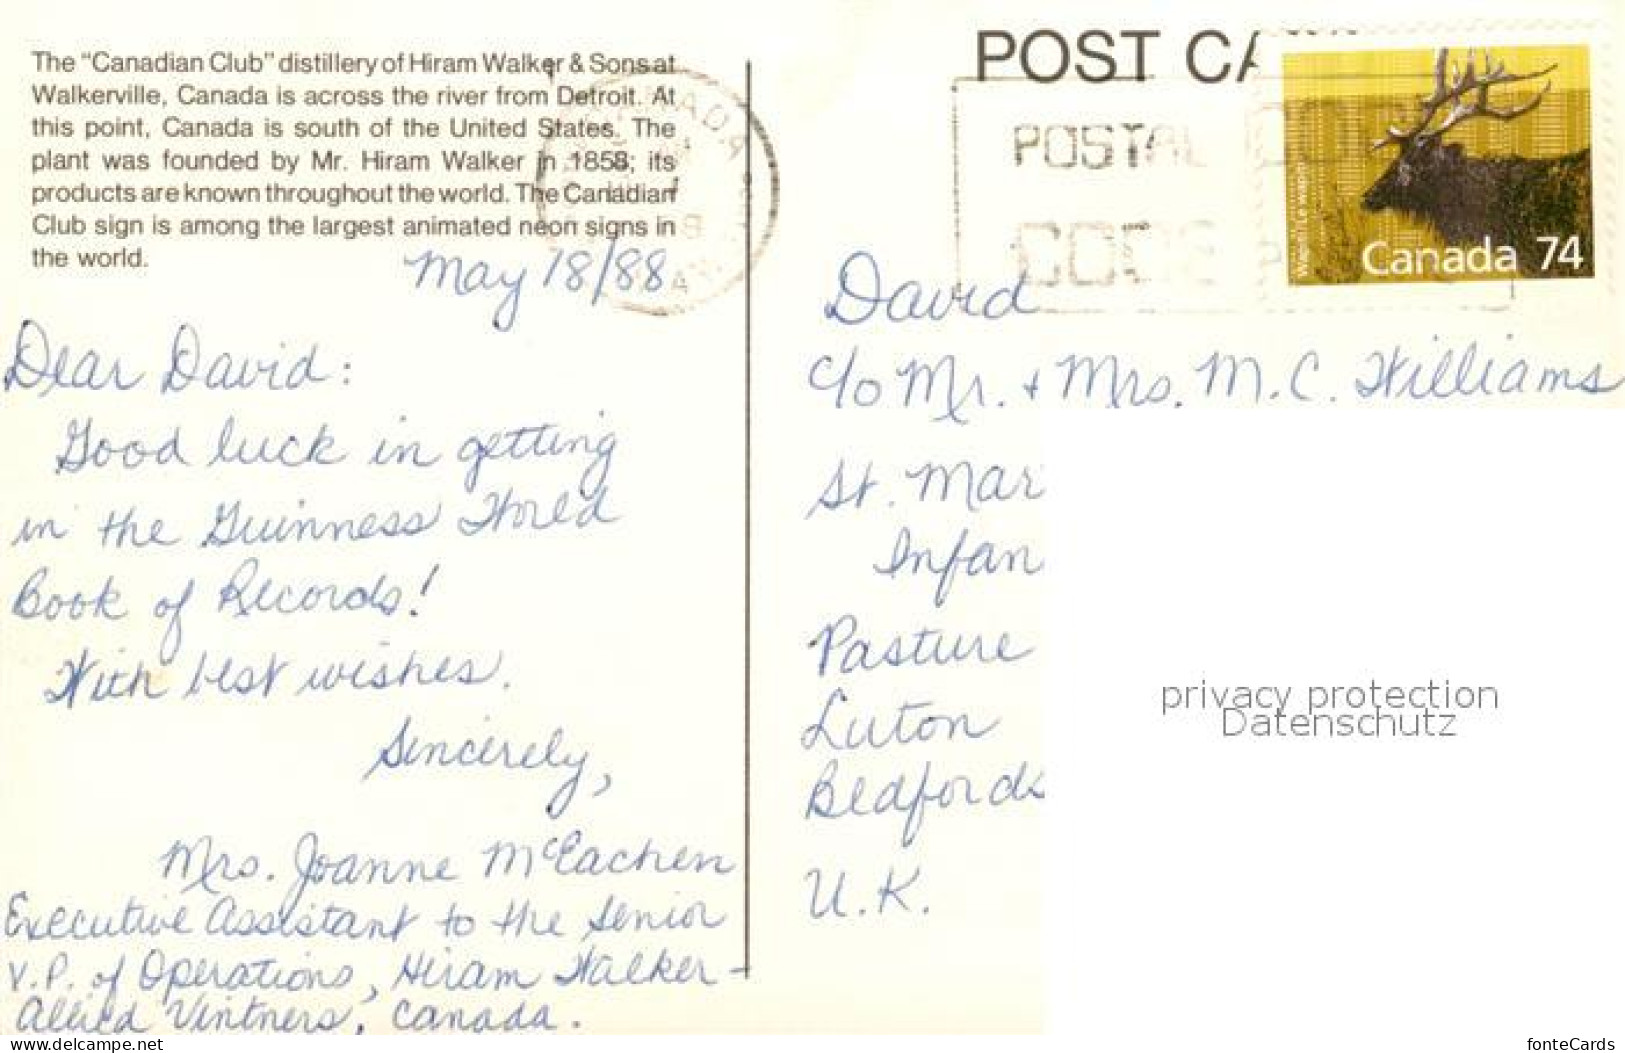 The “Canadian Club” distillery of Hiram Walker & Sons at
Walkerville, Canada is across the river from Detroit. At
this point, Canada is south of the United States. The
plant was founded by Mr. Hiram Walker in 1858; its
products are known throughout the world. The Canadian
Club sign is among the largest animated neon signs in
the world.
May 18/88
Dear David:
Good luck in getting
in the Guinness World
Book of Records!
With best wishes.
Sincerely,
Mrs. Joanne McEachen
Executive Assistant to the Senior
V.P. of Operations, Hiram Walker-
Allied Vintners, Canada.
POST CA
POSTAL CODE
CODE
Wapiti Le wapiti
Canada 74
David
c/o Mr. + Mrs. M. C. Williams
St. Mar
Infan
Pasture
Luton
Bedfords
U.K.
privacy protection
Datenschutz
www.delcampe.net
fonteCards